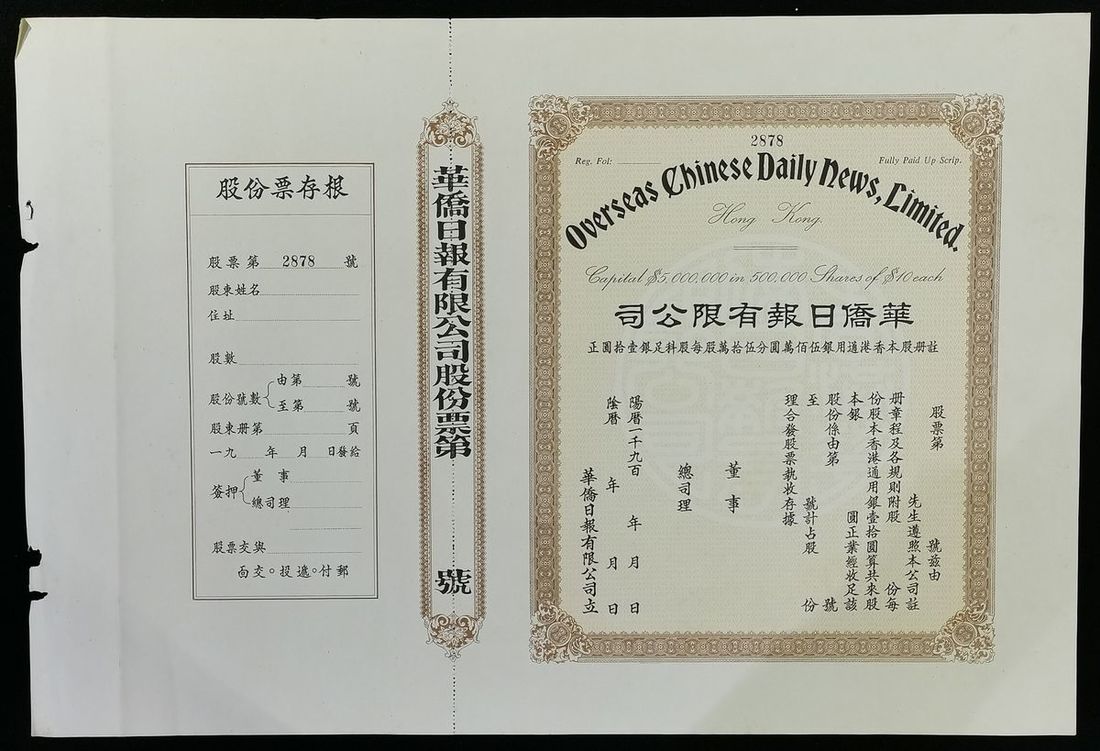 股份票存根
股票第 2878 號
股東姓名
住址
股數
股份號數
由第 號
至第 號
股東册第 頁
一九 年 月 日發給
簽押
董事
總司理
股票交與
面交。投遞。付郵
華僑日報有限公司股份票第 號
2878
Reg. Fol:
Fully Paid Up Scrip.
Overseas Chinese Daily News, Limited.
Hong Kong.
Capital $5,000,000 in 500,000 Shares of $10 each
華僑日報有限公司
註册股本香港通用銀伍佰萬圓分伍拾萬股每股科足銀壹拾圓正
股票第 號茲由
先生遵照本公司註
册章程及各規則附股 份每
份股本香港通用銀壹拾圓算共來股
本銀 圓正業經收足該
股份係由第 號
至 號計占股 份
理合發股票執收存據
董事
總司理
陽曆一千九百 年 月 日
陰曆 年 月 日
華僑日報有限公司立